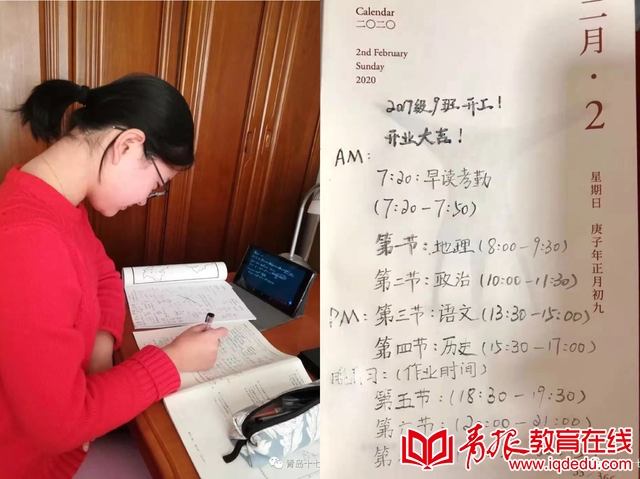 Calendar
二〇二〇
2nd February
Sunday
2020
二月·2
星期日 庚子年正月初九
2017级9班开工!
开业大吉!
AM:
7:20:早读考勤
(7:20-7:50)
第一节:地理(8:00-9:30)
第二节:政治(10:00-11:30)
PM:第三节:语文(13:30-15:00)
第四节:历史(15:30-17:00)
习:(作业时间)
第五节:(18:30-19:30)
第六节:(20:00-21:00)
第
青岛十七
青报教育在线
www.iqdedu.com